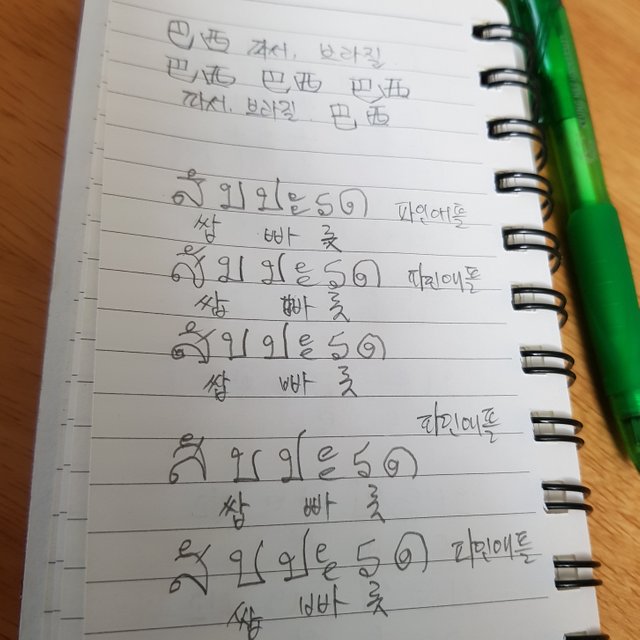 巴西 빠시, 브라질
巴西 巴西 巴西
빠시, 브라질. 巴西
สับปะรด 파인애플
쌉 빠 롯
สับปะรด 파인애플
쌉 빠 롯
สับปะรด
쌉 빠 롯
파인애플
สับปะรด
쌉 빠 롯
สับปะรด 파인애플
쌉 빠 롯